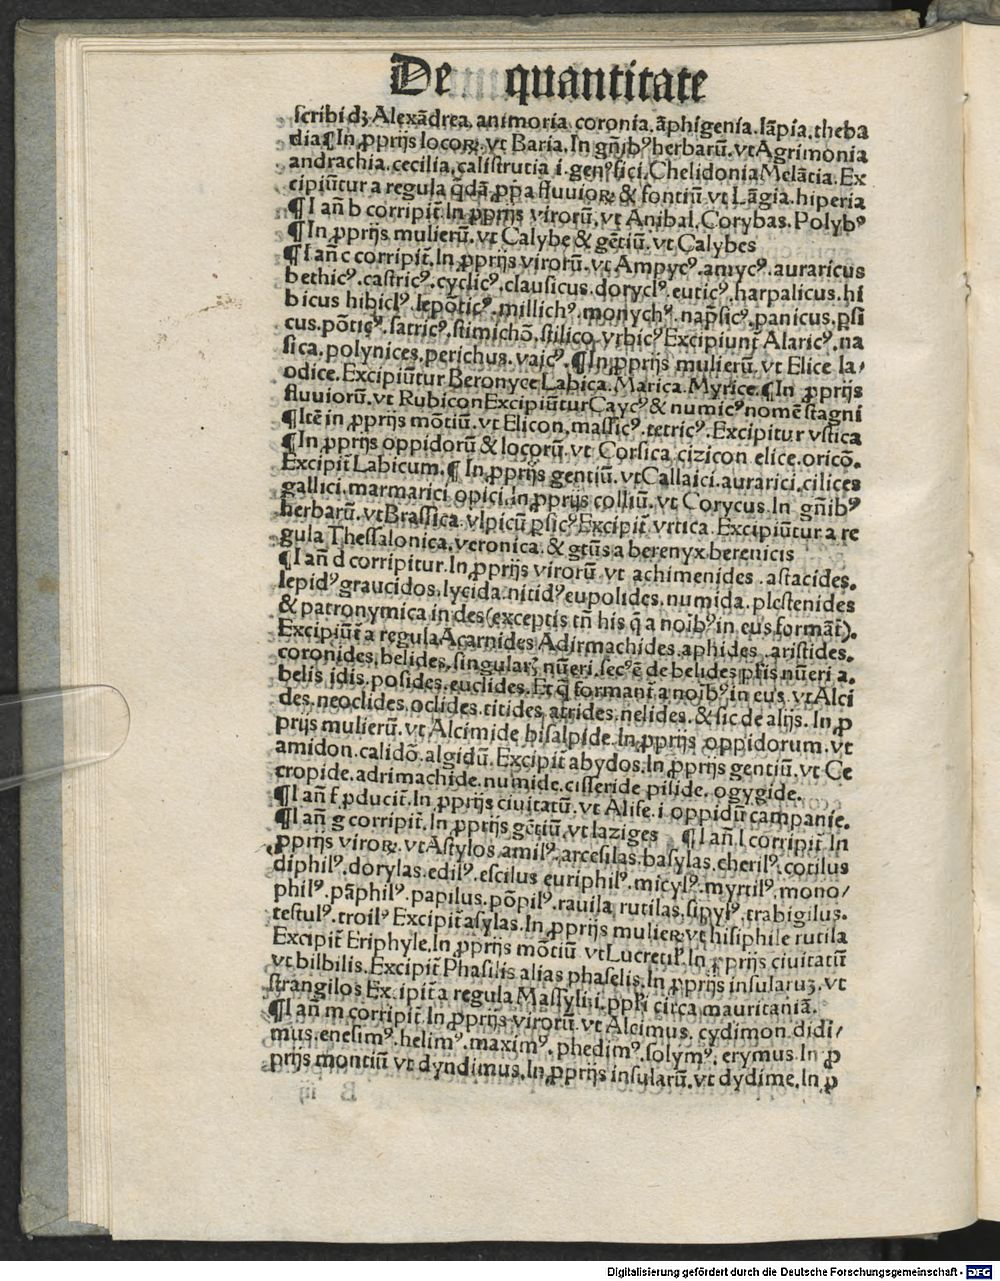 De quantitate
scribi dȝ Alexãdrea. animoria. coronia. ãphigenia. lãpia. theba
dia¶In ꝓprijs locoꝝ. vt Baria. In gñibꝰ herbarũ. vt Agrimonia
andrachia. cecilia. calistrutia .i. genꝰ sici. Chelidonia Melãtia. Ex
cipiũtur a regula q̃dã ꝓpa fluuioꝝ & fontiũ. vt Lãgia. hiperia
¶I añ b corripit̃. In ꝓprijs virorũ. vt Anibal. Corybas. Polybꝰ
¶In ꝓprijs mulierũ. vt Calybe & gẽtiũ. vt Calybes
¶I añ c corripit̃. In ꝓprijs virorũ. vt Ampycꝰ. amycꝰ. auraricus
bethicꝰ. castricꝰ. cyclicꝰ. clausicus. doryclꝰ. euticꝰ. harpalicus. hi
bicus hibiclꝰ. lepõticꝰ. millichꝰ. monychꝰ. nap̃sicꝰ. panicus. psi
cus. põticꝰ. satricꝰ. stimichõ. stilico. vrbicꝰ Excipiunt̃ Alaricꝰ. na
sica. polynices. perichus. vaicꝰ. ¶In ꝓprijs mulierũ. vt Elice la/
odice. Excipiũtur Beronyce Labica. Marica. Myrice. ¶In ꝓprijs
fluuiorũ. vt Rubicon Excipiũtur Caycꝰ & numicꝰ nomẽ stagni
¶Itẽ in ꝓprijs mõtiũ. vt Elicon. massicꝰ. tetricꝰ. Excipitur vstica
¶In ꝓprijs oppidorũ & locorũ. vt Corsica cizicon elice. oricõ.
Excipit̃ Labicum. ¶ In ꝓprijs gentiũ. vt Callaici. aurarici. cilices
gallici. marmarici opici. In ꝓprijs colliũ. vt Corycus. In gñibꝰ
herbarũ. vt Brassica. vlpicũ ꝑsicꝰ Excipit̃ vrtica. Excipiũtur a re
gula Thessalonica. veronica. & gtũs a berenyx berenicis
¶I añ d corripitur. In ꝓprijs virorũ. vt achimenides . astacides.
lepidꝰ graucidos. lycida. nitidꝰ eupolides. numida. plestenides
& patronymica in des (exceptis tñ his q̃ a noibꝰ in eus formãt̃).
Excipiũt̃ a regula Acarnides Adirmachides. aphides . aristides.
coronides. belides. singularȝ nũeri. secꝰ ẽ de belides plis nũeri a.
belis idis. posides. euclides. Et q̃ formant̃ a noibꝰ in eus. vt Alci
des. neoclides. oclides. titides. atrides. nelides. & sic de alijs. In ꝓ
prijs mulierũ. vt Alcimide hisalpide. In ꝓprijs oppidorum. vt
amidon. calidõ. algidũ. Excipit̃ abydos. In ꝓprijs gentiũ. vt Ce
cropide. adrimachide. numide. cisseride piside. ogygide.
¶I añ f ꝓducit̃. In ꝓprijs ciuitatũ. vt Alife. i oppidũ campanie.
¶I añ g corripit̃. In ꝓprijs gẽtiũ. vt Iaziges ¶I añ l corripit̃ In
ꝓprijs viroꝝ. vt Astylos amilꝰ. arcesilas. basylas. cherilꝰ. cotilus
diphilꝰ. dorylas. edilꝰ. escilus euriphilꝰ. micylꝰ. myrtilꝰ. mono/
philꝰ. pãphilꝰ. papilus. põpilꝰ. rauila rutilas. sipylꝰ. trabigilus.
testulꝰ. troilꝰ Excipit̃ asylas. In ꝓprijs mulieꝝ. vt hisiphile rutila
Excipit̃ Eriphyle. In ꝓprijs mõtiũ vt Lucretilꝭ. In ꝓprijs ciuitatũ
vt bilbilis. Excipit̃ Phasilis alias phaselis. In ꝓprijs insularuȝ. vt
strangilos Excipit̃ a regula Massylij. ppli circa mauritaniã.
¶I añ m corripit̃. In ꝓprijs virorũ. vt Alcimus. cydimon didi/
mus. enesimꝰ. helimꝰ. maximꝰ. phedimꝰ. solymꝰ. erymus In ꝓ
prijs montiũ vt dyndimus. In ꝓprijs insularũ. vt dydime. In ꝓ
Digitalisierung gefördert durch die Deutsche Forschungsgemeinschaft - DFG